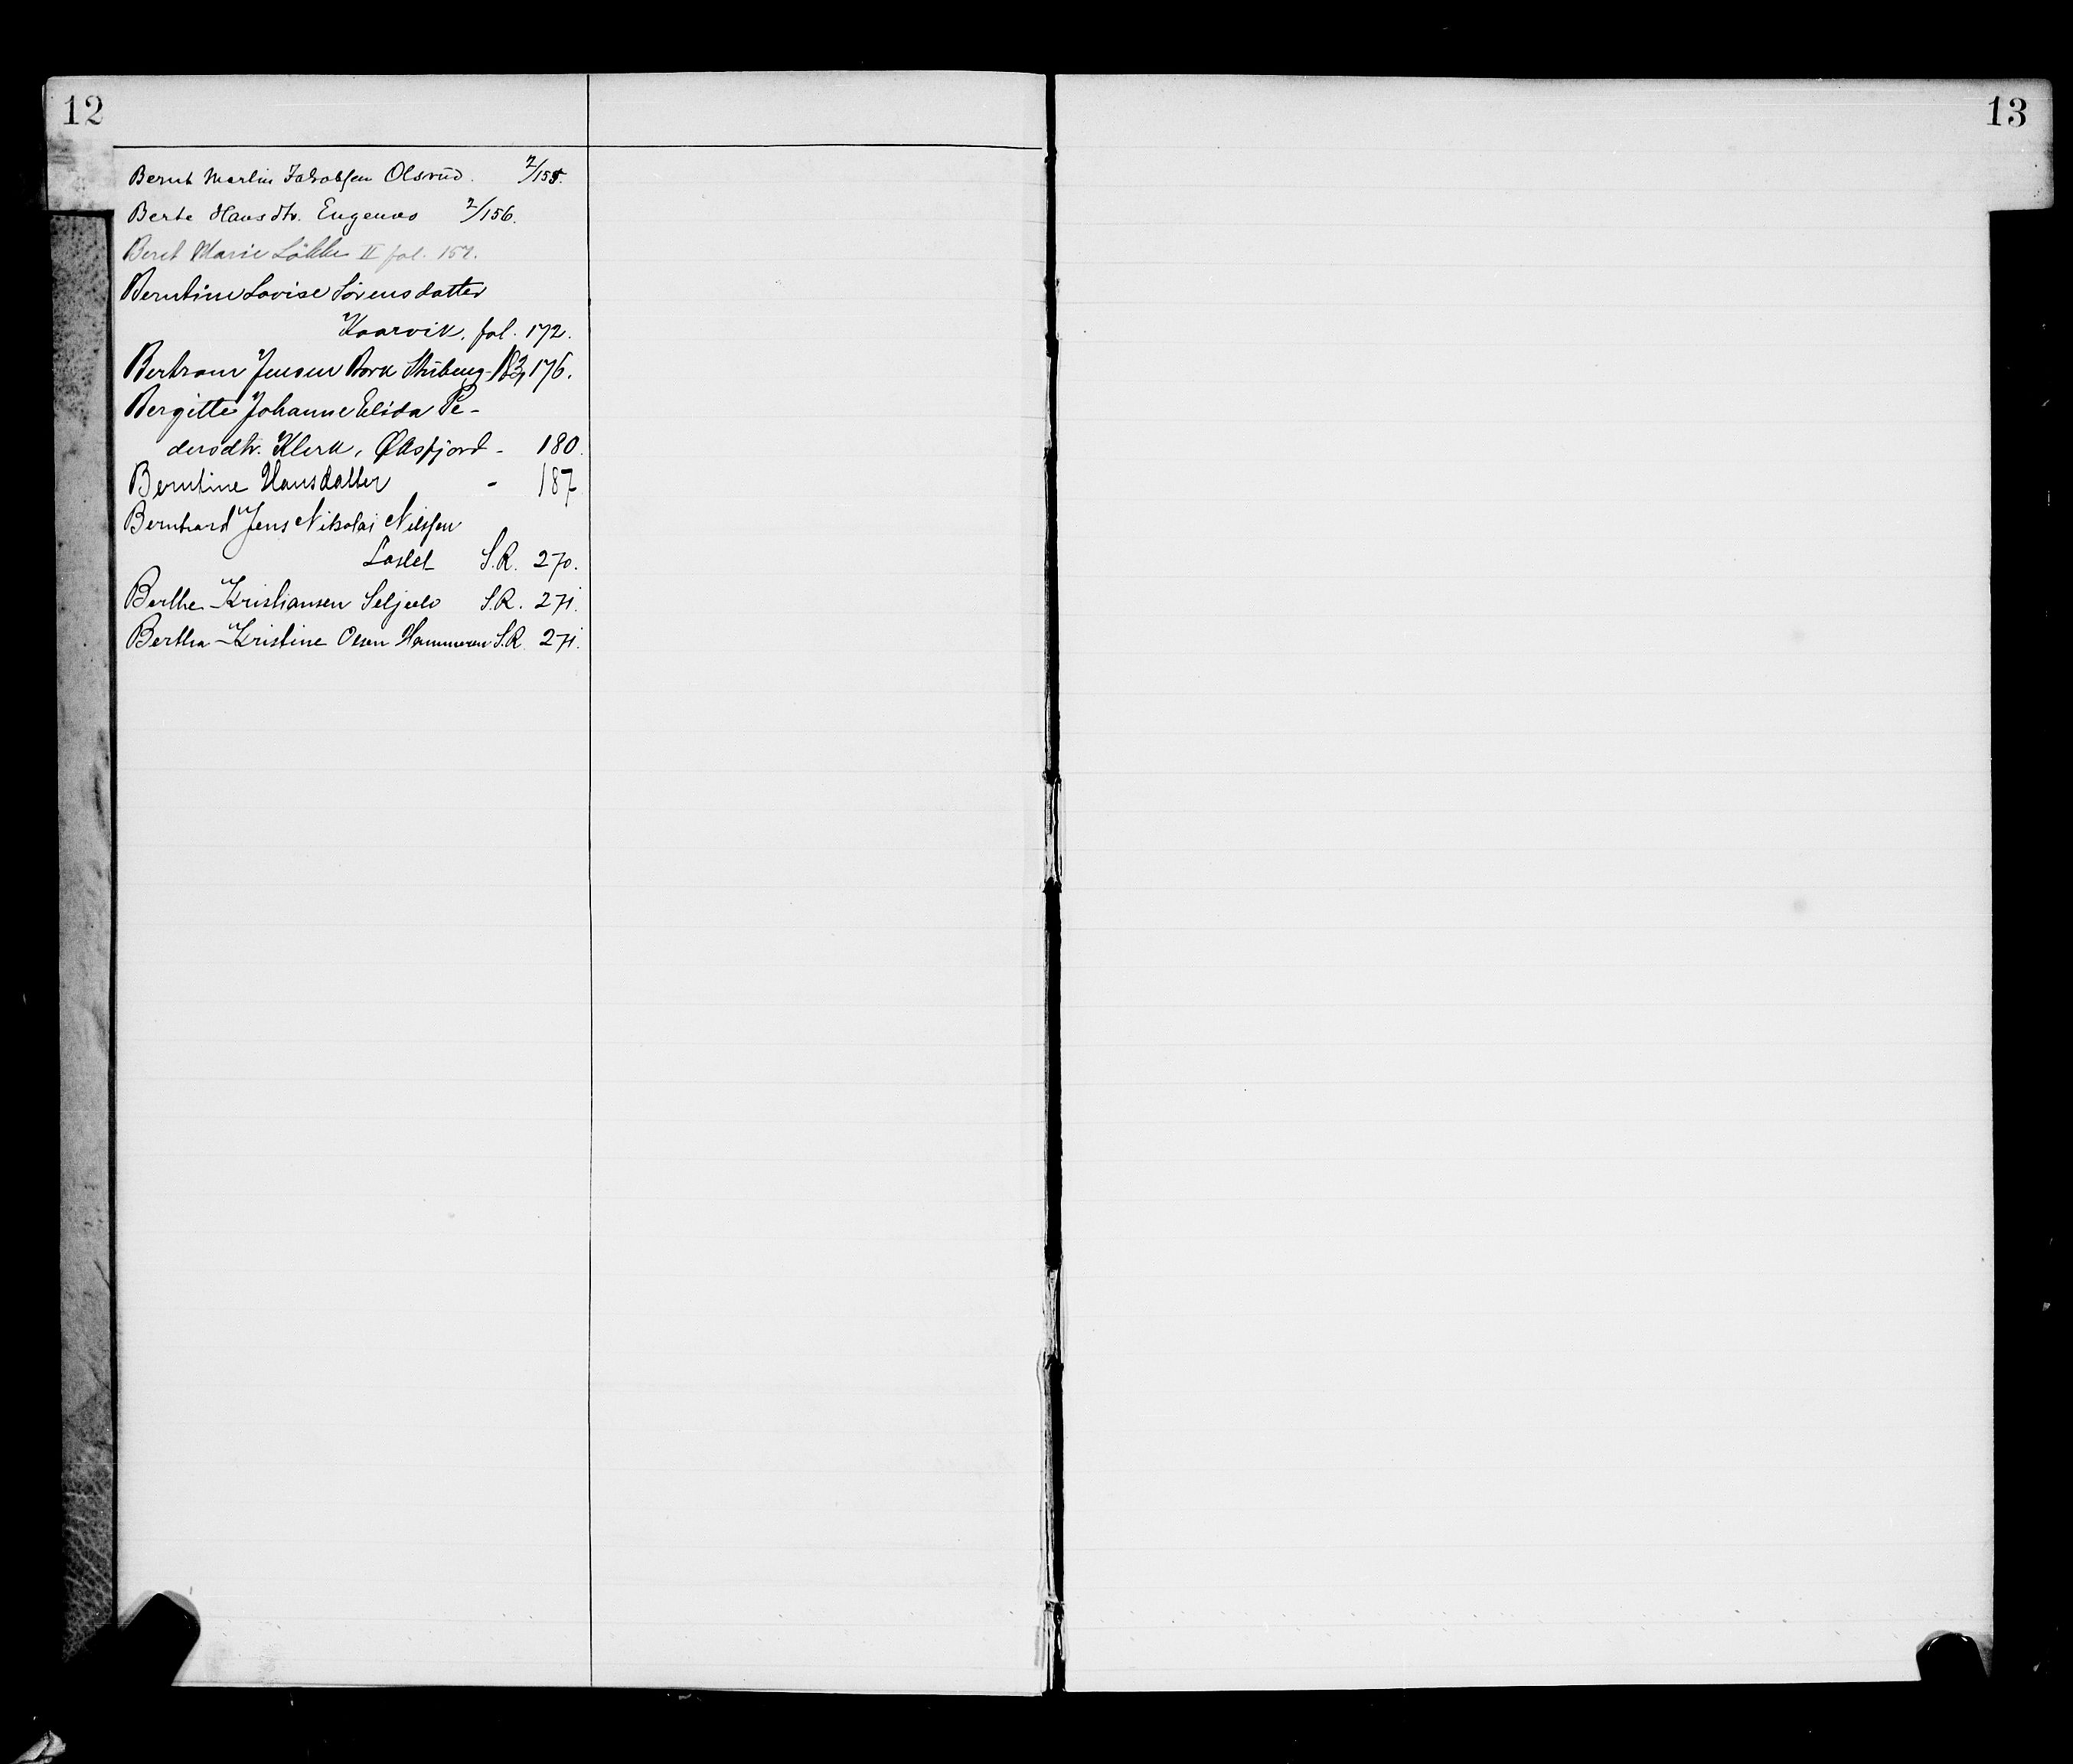 12
13
Bernt Martin Jakobsen Olsrud. 2/155.
Berte Hansdtr. Engenes 2/156.
Berit Marie Løkke II fol. 157.
Berntine Lovise Sørensdatter
Kaarvik, fol. 172.
Bertram Jensen Bork 176.
Bergitte Johanne Elida Pe-
dersdtr. Klerk, Øksfjord - 180.
Berntine Hansdatter - 187
Bernhard Jens Nikolai Nilssen
S.R. 270.
Berthe Kristiansen Seljeelv S.R. 271.
Bertha Kristine Olsen Hammeren S.R. 271.